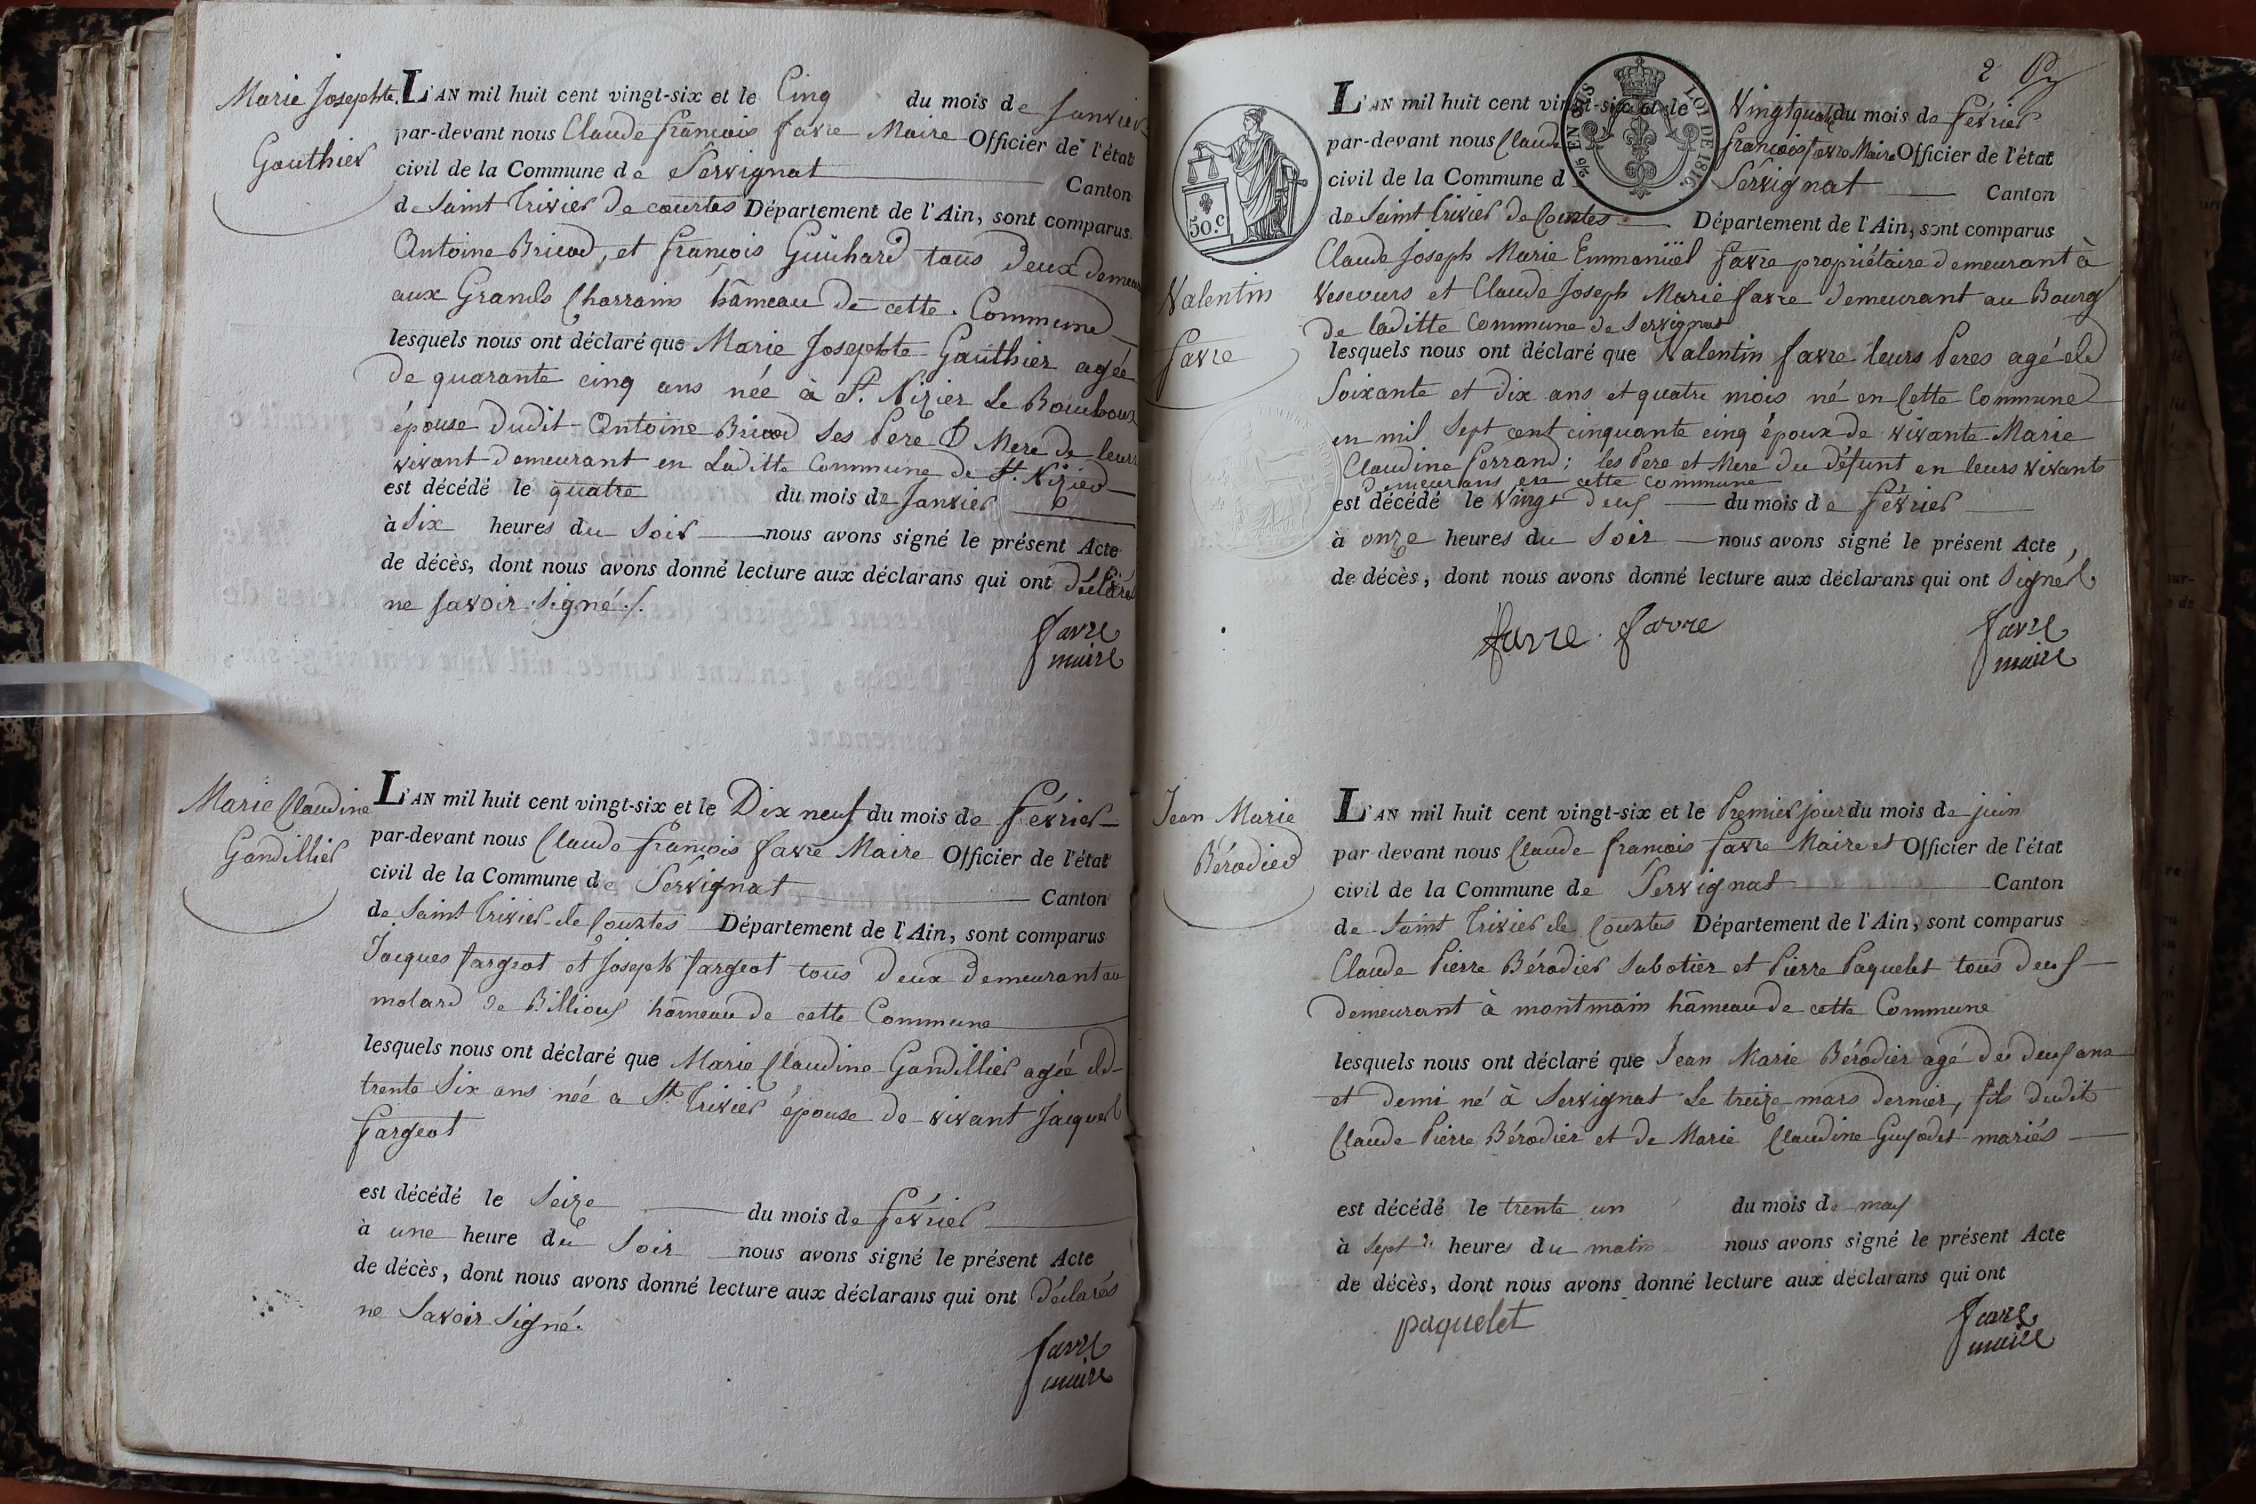 Marie Josephte
Gauthier
L'AN mil huit cent vingt-six et le Cinq du mois de Janvier
par-devant nous Claude françois favre Maire Officier de l'état
civil de la Commune de Servignat Canton
de Saint Trivier de courtes Département de l'Ain, sont comparus
Antoine Bricod, et françois Guichard tous deux
aux Grands Charrains hâmeau de cette Commune
lesquels nous ont déclaré que Marie Josephte Gauthier agée
de quarante cinq ans née à St. Nizier Le Bouchoux
épouse dudit Antoine Bricod ses Pere & Mere de leurs
vivant demeurant en Laditte Commune de St. Nizier
est décédé le quatre du mois de Janvier
à Six heures du Soir nous avons signé le présent Acte
de décès, dont nous avons donné lecture aux déclarans qui ont déclarés
ne savoir signé.
favre
maire
Marie Claudine
Gandillier
L'AN mil huit cent vingt-six et le Dix neuf du mois de février
par-devant nous Claude françois favre Maire Officier de l'état
civil de la Commune de Servignat Canton
de Saint Trivier de Courtes Département de l'Ain, sont comparus
Jacques fargeot et Joseph fargeot tous deux demeurant au
molard de Billioux hâmeau de cette Commune
lesquels nous ont déclaré que Marie Claudine Gandillier agée de
trente Six ans née a St. Trivier épouse de vivant Jacques
fargeot
est décédé le Seize du mois de février
à une heure du Soir nous avons signé le présent Acte
de décès, dont nous avons donné lecture aux déclarans qui ont déclarés
ne Savoir Signé.
favre
maire
2
50.c
EN SUS
LOI DE 1816.
Valentin
favre
L'AN mil huit cent vingt-six et le Vingt quatre du mois de février
par-devant nous Claude françois favre Maire Officier de l'état
civil de la Commune de Servignat Canton
de Saint Trivier de Courtes Département de l'Ain, sont comparus
Claude Joseph Marie Emmanuël favre propriétaire demeurant à
Vescours et Claude Joseph Marie favre demeurant au Bourg
de laditte Commune de Servignat
lesquels nous ont déclaré que Valentin favre leurs Peres agé de
Soixante et dix ans et quatre mois né en Cette Commune
en mil Sept cent cinquante cinq époux de vivante Marie
Claudine ferrand; les Pere et Mere du défunt en leurs vivants
demeurans en cette commune
est décédé le Vingt deux du mois de février
à onze heures du Soir nous avons signé le présent Acte,
de décès, dont nous avons donné lecture aux déclarans qui ont Signés
favre favre
favre
maire
Jean Marie
Bérodier
L'AN mil huit cent vingt-six et le Premier jour du mois de juin
par devant nous Claude françois favre Maire et Officier de l'état
civil de la Commune de Servignat Canton
de Saint Trivier de Courtes Département de l'Ain, sont comparus
Claude Pierre Bérodier Sabotier et Pierre Paquelet tous deux
demeurant à montmain hâmeau de cette Commune
lesquels nous ont déclaré que Jean Marie Bérodier agé de deux ans
et demi né à Servignat Le treize mars dernier, fils dudit
Claude Pierre Bérodier et de Marie Claudine Guyodet mariés
est décédé le trente un du mois de may
à sept heures du matin nous avons signé le présent Acte
de décès, dont nous avons donné lecture aux déclarans qui ont
paquelet
favre
maire